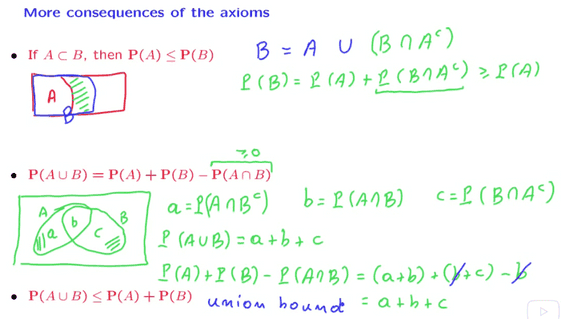 More consequences of the axioms
• If A ⊂ B, then P(A) ≤ P(B)
B = A ∪ (B ∩ Aᶜ)
P(B) = P(A) + P(B ∩ Aᶜ) ≥ P(A)
A
B
≥0
• P(A ∪ B) = P(A) + P(B) − P(A ∩ B)
A a b c B
a = P(A ∩ Bᶜ) b = P(A ∩ B) c = P(B ∩ Aᶜ)
P(A ∪ B) = a + b + c
P(A) + P(B) − P(A ∩ B) = (a + b) + (b + c) − b
• P(A ∪ B) ≤ P(A) + P(B) union bound = a + b + c